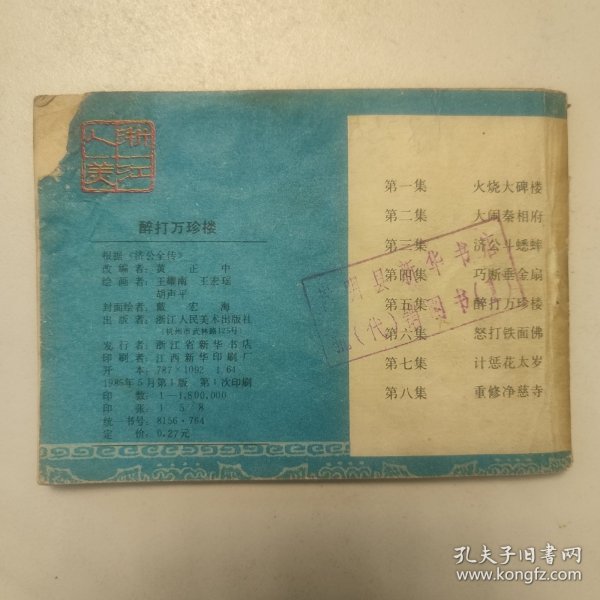 浙江
人美
醉打万珍楼
根据《济公全传》
改编者：黄正中
绘画者：王耀南 王宏瑶
胡声平
封面绘者：戴宏海
出版者：浙江人民美术出版社
（杭州市武林路125号）
发行者：浙江省新华书店
印刷者：江西新华印刷厂
开本：787×1092 1/64
1985年5月第1版 第1次印刷
印数：1—1,800,000
印张：1 5/8
统一书号：8156·764
定价：0.27元
第一集 火烧大碑楼
第二集 大闹秦相府
第三集 济公斗蟋蟀
第四集 巧断垂金扇
第五集 醉打万珍楼
第六集 怒打铁面佛
第七集 计惩花太岁
第八集 重修净慈寺
明县新华书店
孔夫子旧书网
www.kongfz.com